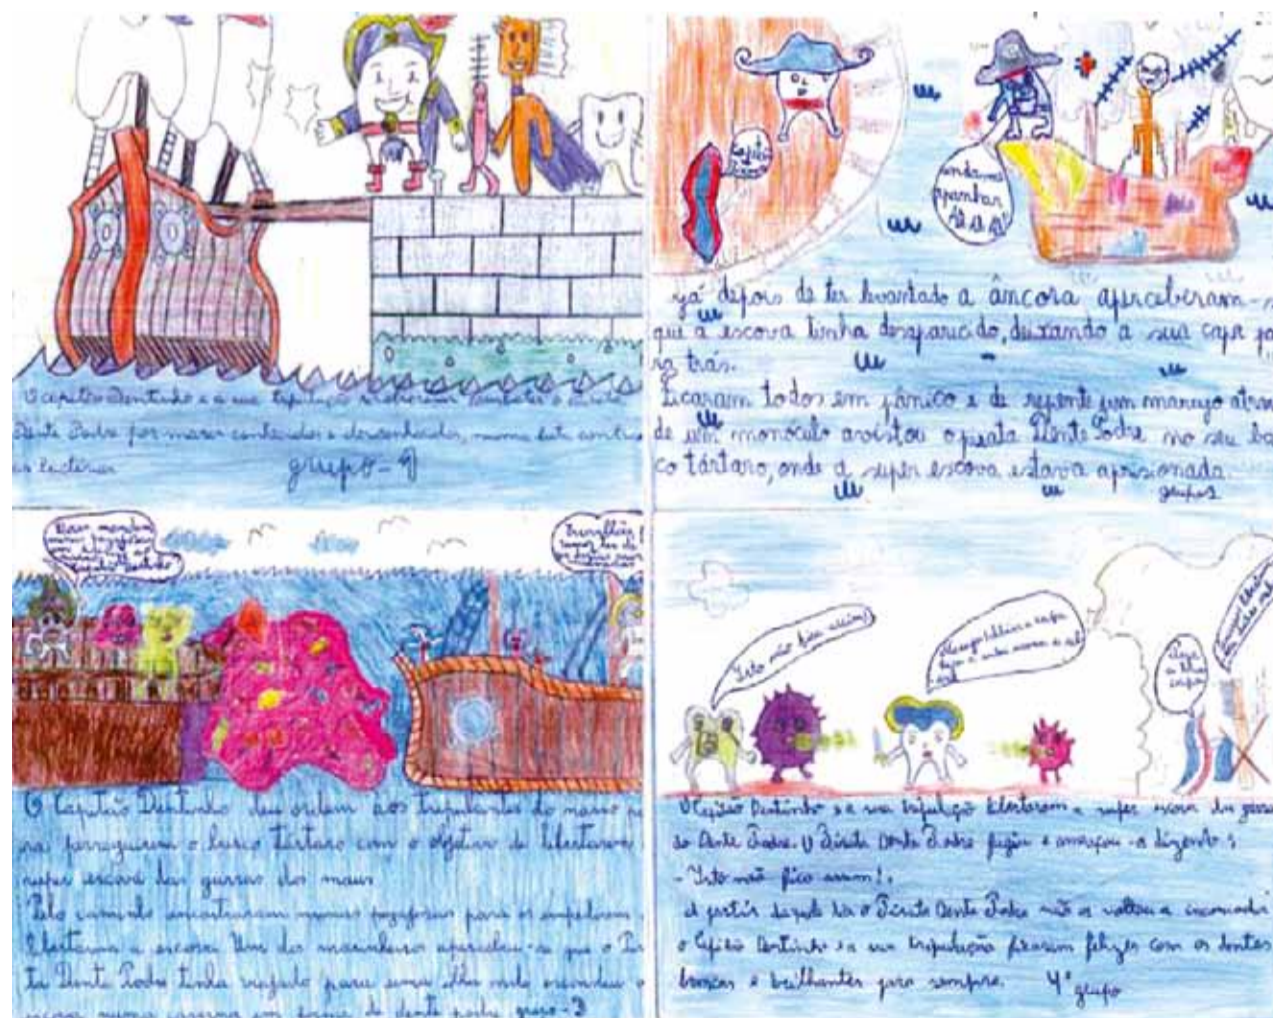 O capitão Dentinho e a sua tripulação resolveram combater o pirata
Dente Podre por mares conhecidos e desconhecidos, numa luta contra
as bactérias grupo-1
andamos
apanhar
Ah ah ah!
já depois de ter levantado a âncora aperceberam-s
que a escova tinha desaparecido, deixando a sua capa pa
ra trás.
Ficaram todos em pânico e de repente um marujo atrav
de um monóculo avistou o pirata Dente Podre no seu ba
co tártaro, onde a super escova estava aprisionada.
grupo 2
O Capitão Dentinho deu ordem aos tripulantes do navio pa
ra perseguirem o barco tártaro com o objetivo de libertarem
super escova das garras dos maus
Pelo caminho encontraram para os impedirem
libertarem a escova Um dos marinheiros apercebeu-se que o Pi
ta Dente Podre tinha viajado para uma ilha onde escondeu
escova numa caverna em forma de dente podre grupo-3
Isto não fica assim!
O Capitão Dentinho e a sua tripulação libertaram a super escova das garras
do Dente Podre. O Pirata Dente Podre fugiu e ameaçou-o dizendo:
- Isto não fica assim!.
A partir daquele dia o Pirata Dente Podre não os voltou a incomodar
o Capitão Dentinho e a sua tripulação ficaram felizes com os dentes
brancos e brilhantes para sempre. 4º grupo